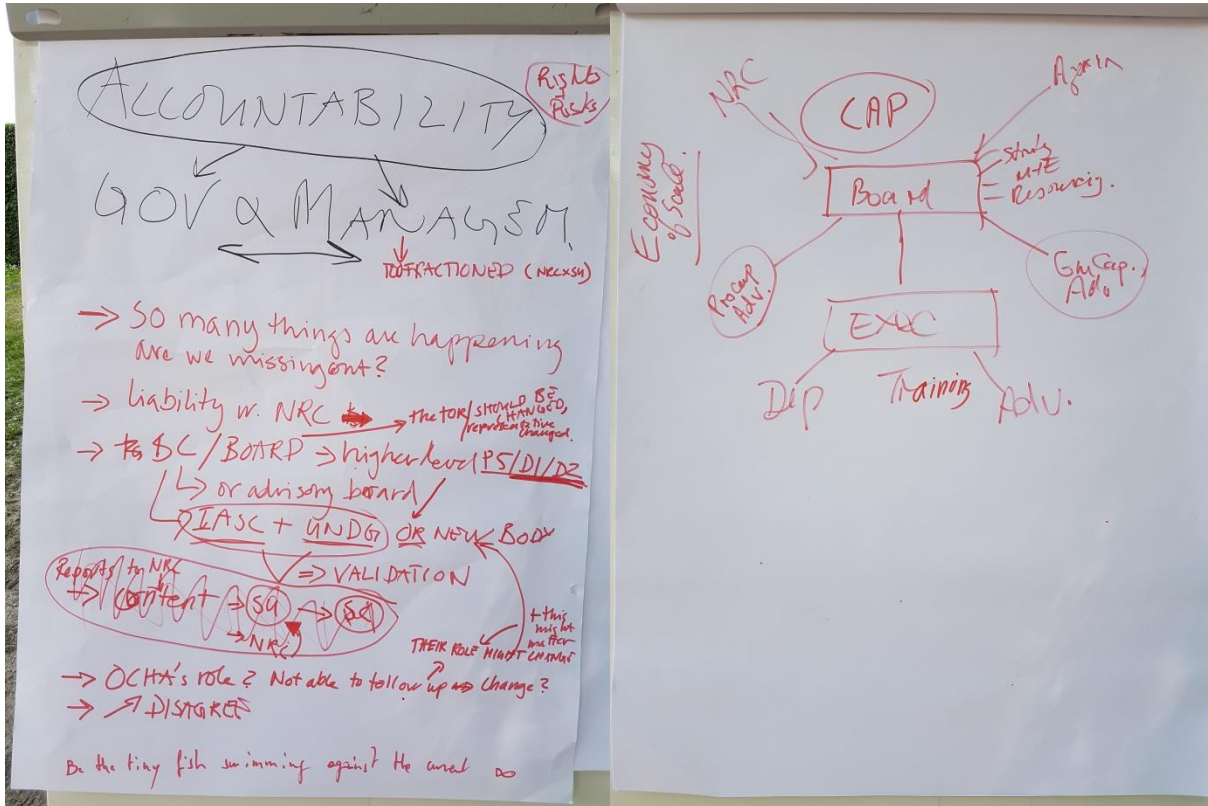 ACCOUNTABILITY
Rights
Risks
GOV & MANAGEM.
TOO FRACTIONED (NRC x SU)
→ So many things are happening
are we missing out?
→ liability w. NRC
→ the TOR/SHOULD BE
CHANGED,
representative
changed.
→ SC/BOARD → higher level P5/D1/D2
↳ or advisory board
IASC + UNDG OR NEW BODY
⇒ VALIDATION
Reports to NRC
→ content → SU →
→ NRC
+ this
might
matter
THEIR ROLE MIGHT CHANGE
→ OCHA's role? Not able to follow up → change?
→ ↗ DISAGREE
Be the tiny fish swimming against the current
NRC
CAP
Economy
of Scale.
Board
M+E
Resourcing.
ProCap
Adv.
GenCap.
Adv.
EXEC
Dep
Training
Adv.